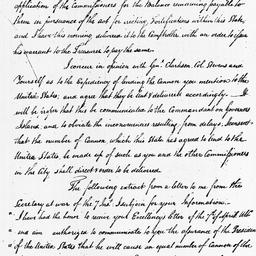 application of the Commissioners for the Balance remaining payable to
them in pursuance of the act for erecting Fortifications within this State,
and I have this morning delivered it to the Comptroller with an order to issue
his warrant to the Treasurer to pay the same.
I concur in opinion with Genl. Clarkson, Col. Stevens and
Yourself as to the Expediency of lending the Cannon you mention to the
United States, and agree that they be lent & delivered accordingly — It
will be proper that this be communicated to the Commandant on Governors
Island, and to obviate the inconvenience resulting from delays,
that the number of Cannon which this State has agreed to lend to the
United States, be made up of such as you and the other Commissioners
in the City shall direct & order to be delivered.
The following extract from a letter to me from the
Secretary at war of the 7th Inst. I subjoin for your Information.—
"I have had the honor to receive your Excellency's letter of the 7th of April
" and am authorized to communicate to you the assurance of the President
" of the United States that he will cause an equal number of Cannon of the